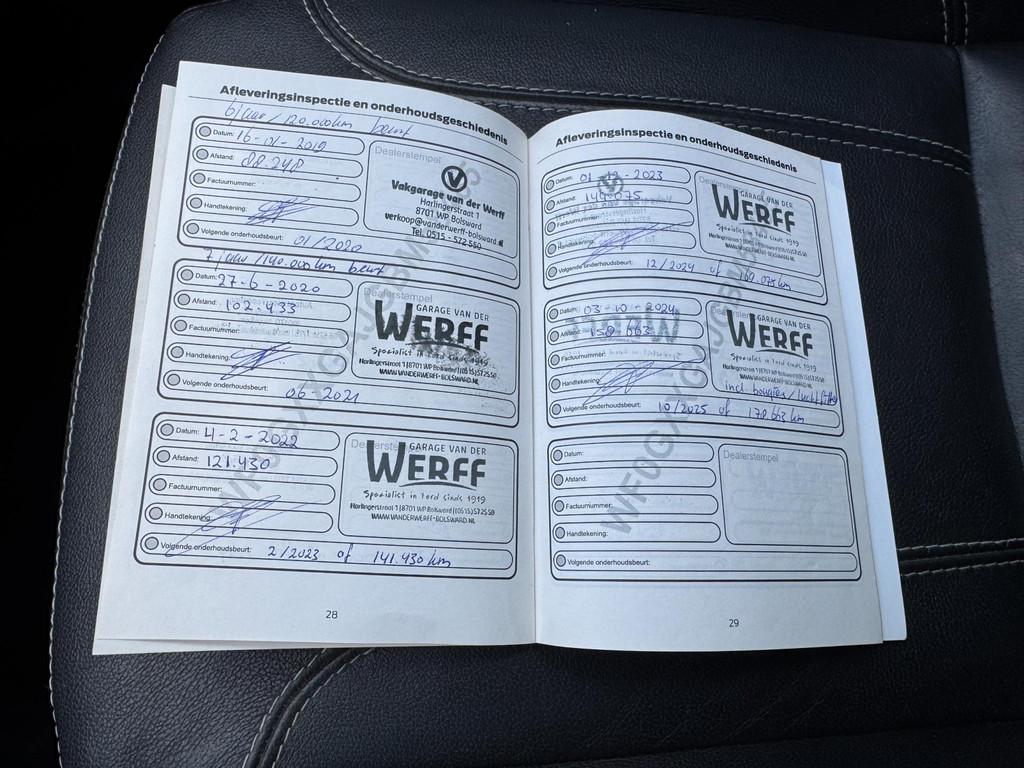 Afleveringsinspectie en onderhoudsgeschiedenis
6 jaar / 120.000 km beurt
Datum: 16-01-2019
Afstand: 88.248
Factuurnummer:
Handtekening:
Volgende onderhoudsbeurt: 01/2020
Dealerstempel
Vakgarage van der Werff
Harlingerstraat 1
8701 WP Bolsward
verkoop@vanderwerff-bolsward.nl
Tel. 0515 - 572 550
7 jaar / 140.000 km beurt
Datum: 27-6-2020
Afstand: 102.433
Factuurnummer:
Handtekening:
Volgende onderhoudsbeurt: 06 2021
Dealerstempel
GARAGE VAN DER
WERFF
Specialist in Ford sinds 1919
Harlingerstraat 1 | 8701 WP Bolsward | (0515) 572550
WWW.VANDERWERFF-BOLSWARD.NL
Datum: 4-2-2022
Afstand: 121.430
Factuurnummer:
Handtekening:
Volgende onderhoudsbeurt: 2/2023 of 141.430 km
Dealerstempel
GARAGE VAN DER
WERFF
Specialist in Ford sinds 1919
Harlingerstraat 1 | 8701 WP Bolsward | (0515) 572550
WWW.VANDERWERFF-BOLSWARD.NL
28
Afleveringsinspectie en onderhoudsgeschiedenis
Datum: 01-12-2023
Afstand: 144.075
Factuurnummer:
Handtekening:
Volgende onderhoudsbeurt: 12/2024 of 169.075 km
Dealerstempel
GARAGE VAN DER
WERFF
Specialist in Ford sinds 1919
Harlingerstraat 1 | 8701 WP Bolsward | (0515) 572550
WWW.VANDERWERFF-BOLSWARD.NL
Datum: 03-10-2024
Afstand: 158.663
Factuurnummer:
Handtekening:
Volgende onderhoudsbeurt: 10/2025 of 178.663 km
Dealerstempel
GARAGE VAN DER
WERFF
Specialist in Ford sinds 1919
Harlingerstraat 1 | 8701 WP Bolsward | (0515) 572550
WWW.VANDERWERFF-BOLSWARD.NL
incl. bougies / luchtfilter
Datum:
Afstand:
Factuurnummer:
Handtekening:
Volgende onderhoudsbeurt:
Dealerstempel
29